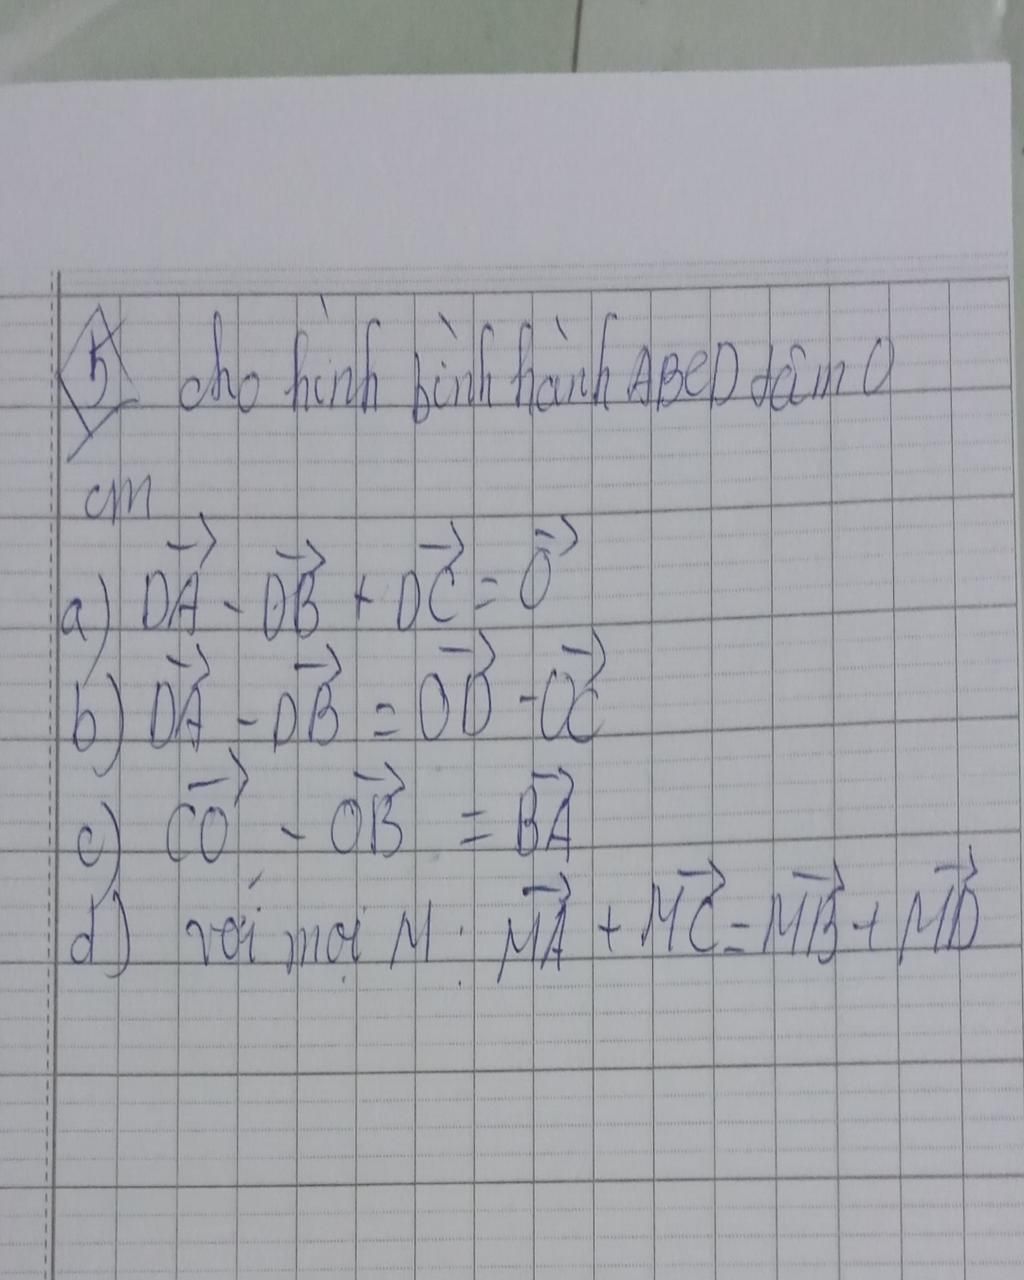 5 cho hình bình hành ABCD tâm O
cm
a) \overrightarrow{DA} - \overrightarrow{DB} + \overrightarrow{DC} = \overrightarrow{O}
b) \overrightarrow{DA} - \overrightarrow{DB} = \overrightarrow{OD} - \overrightarrow{OC}
c) \overrightarrow{CO} - \overrightarrow{OB} = \overrightarrow{BA}
d) với mọi M. \overrightarrow{MA} + \overrightarrow{MC} = \overrightarrow{MB} + \overrightarrow{MD}